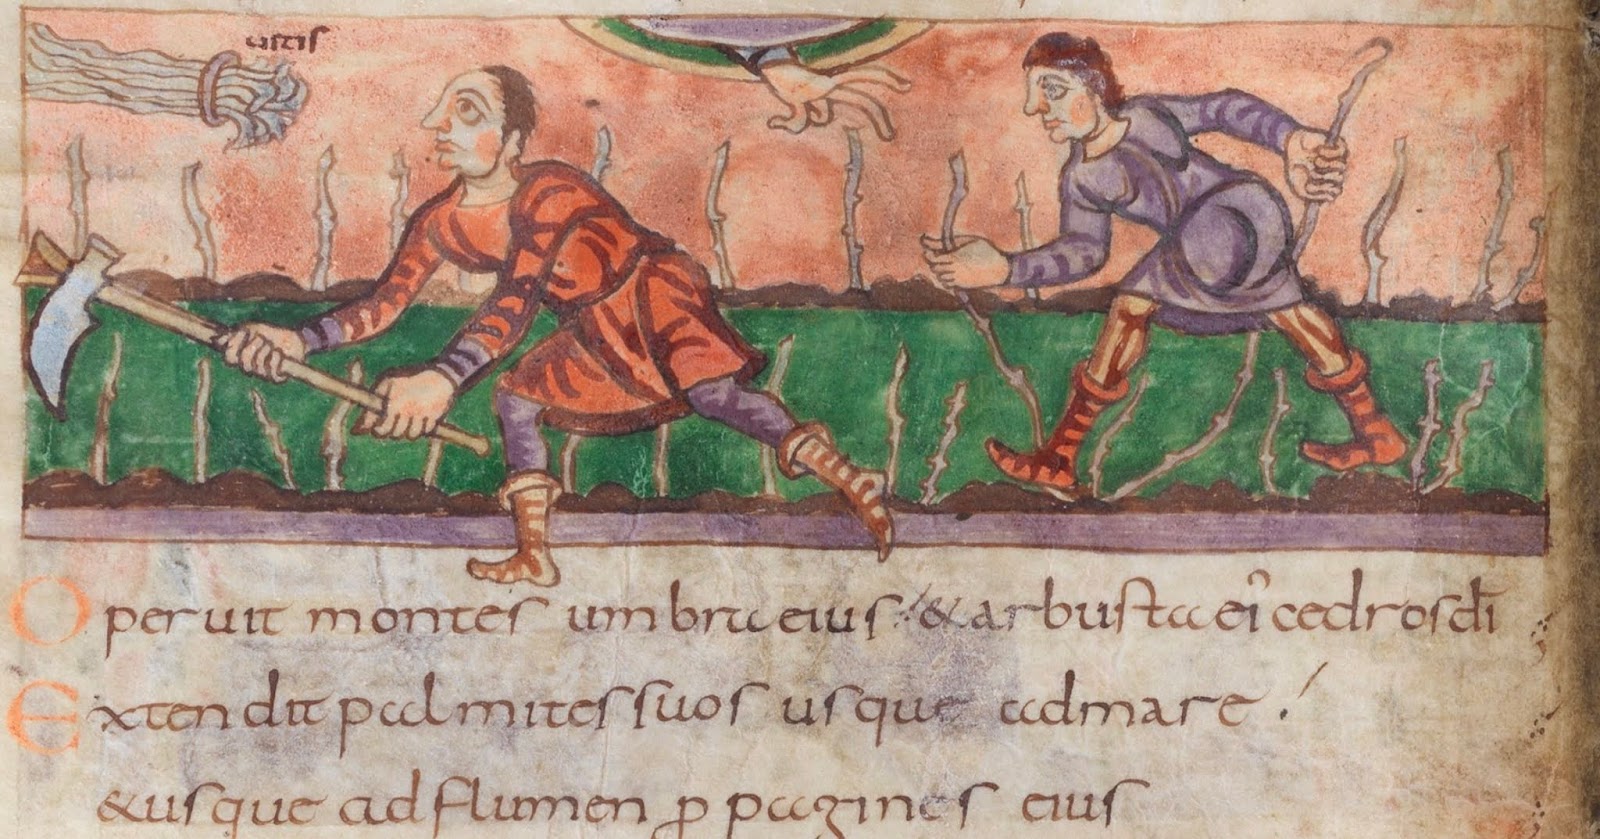 uitis
Operuit montes umbra eius & arbusta ei' cedros dī
Extendit palmites suos usque ad mare
&usque ad flumen ꝓpagines eius